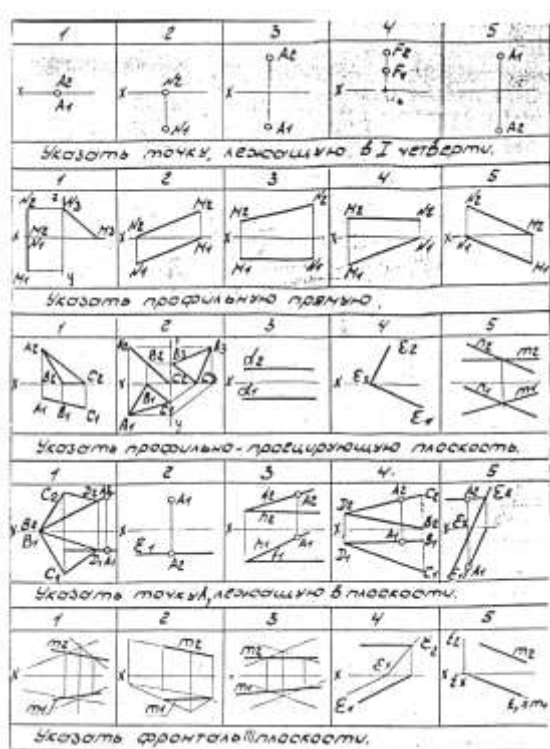 1 2 3 4 5
X A2 A1 X N2 N1 X A2 A1 X F2 F1 X A1 A2
Указать точку, лежащую в I четверти.
1 2 3 4 5
N2 z N3 X M2 N1 M3 M1 y X N2 M2 N1 M1 X M2 N2 M1 N1 X M2 N2 M1 N1 X N2 M2 N1 M1
Указать профильную прямую.
1 2 3 4 5
A2 X B2 C2 A1 B1 C1 A2 B2 B3 A3 X C2 B1 C1 A1 y X α2 α1 X Ex E2 E1 n2 m2 X n1 m1
Указать профильно-проецирующую плоскость.
1 2 3 4 5
C2 D2 A2 X B2 B1 D1 A1 C1 A1 X E1 A2 f2 A2 X h2 h1 A1 f1 D2 A2 C2 X B2 A1 B1 D1 C1 A2 E2 X Ex E1 A1
Указать точку A, лежащую в плоскости.
1 2 3 4 5
m2 X m1 m2 X m1 m2 m1 E2 X E1 E2 m2 X Ex
Указать фронталь плоскости.